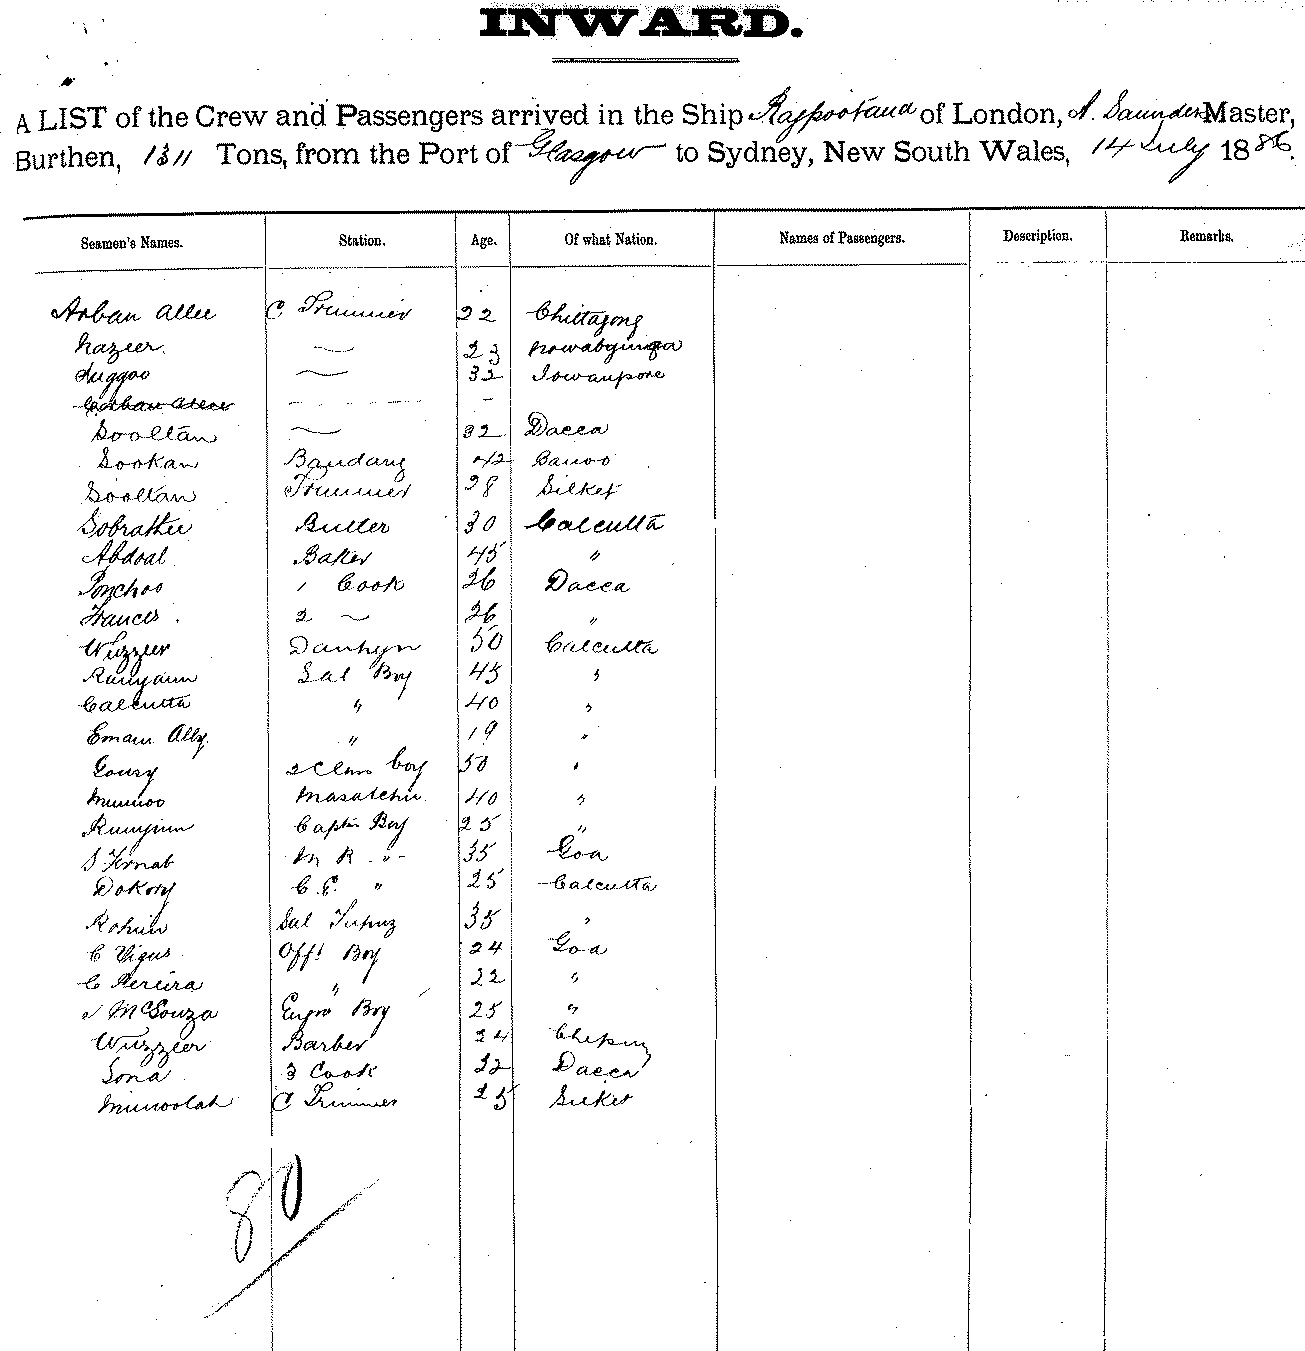 INWARD.
A LIST of the Crew and Passengers arrived in the Ship Rajpootana of London, A. Saunders Master,
Burthen, 1311 Tons, from the Port of Glasgow to Sydney, New South Wales, 14 July 1886.
Seamen's Names. Station. Age. Of what Nation. Names of Passengers. Description. Remarks.
Arban Allee C. Trimmer 22 Chittagong
Nazeer. 〃 23
Juggoo 〃 32 Jowanpore
Sooltan 〃 32 Dacca
Sookan 42
Sooltan Trimmer 28 Silket
Butler 30 Calcutta
Abdoal Baker 45 "
Ponchoo 1 Cook 26 Dacca
Frances 2 〃 26 "
Wuzzeer 50 Calcutta
Ramjaun Sal Boy 45 "
Calcutta " 40 "
Emam Ally " 19 "
Gousy 2 Class boy 50 "
Munnoo Masalchie 40 "
Rumjum Captn Boy 25 "
35 Goa
C. E. " 25 Calcutta
Rohim Sal 35 "
C Offs Boy 24 Goa
C Pereira " 22 "
Engrs Boy 25 "
Wuzzeer Barber 24
Sona 3 Cook 22 Dacca
Munoolah C Trimmer 25 Silket
80